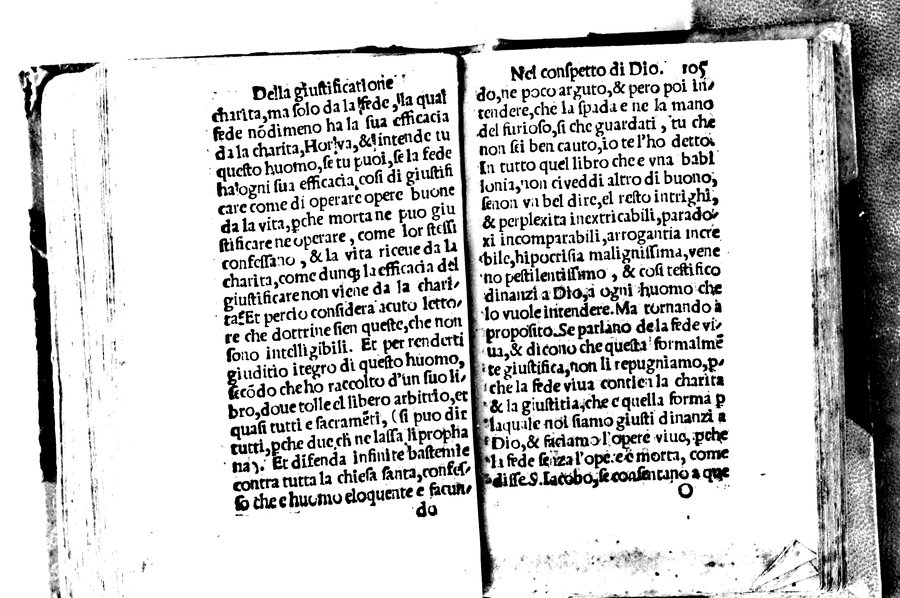 Della giustificatione
charita, ma solo da la fede, lla qual
fede nõdimeno ha la sua efficacia
da la charita, Hor va, & intende tu
questo huomo, se tu puoi, se la fede
ha ogni sua efficacia, cosi di giustifi
care come di operare opere buone
da la vita, pche morta ne puo giu
stificare ne operare, come lor stessi
confessano, & la vita riceue da la
charita, come dunq; la efficacia del
giustificare non viene da la chari-
ta? Et percio considera acuto letto-
re che dottrine sien queste, che non
sono intelligibili. Et per renderti
giuditio ītegro di questo huomo,
secõdo che ho raccolto d'un suo li
bro, doue tolle el libero arbitrio, et
quasi tutti e sacramẽti, (si puo dir
tutti, pche due cħ ne lassa li propha
na). Et difenda infinite bastemie
contra tutta la chiesa santa, confes-
so che e huomo eloquente e facun-
do
Nel conspetto di Dio. 105
do, ne poco arguto, & pero poi in-
tendere, che la spada e ne la mano
del furioso, si che guardati, tu che
non sei ben cauto, io te l'ho detto.
In tutto quel libro che e vna babi
lonia, non ci veddi altro di buono,
senon vn bel dire, el resto intrighi,
& perplexita inextricabili, parado-
xi incomparabili, arrogantia incre
bile, hipocrisia malignissima, vene
no pestilentissimo, & cosi testifico
dinanzi a Dio, a ogni huomo che
lo vuole intendere. Ma tornando à
proposito. Se parlano de la fede vi-
ua, & dicono che questa formalmẽ
te giustifica, non li repugniamo, p-
che la fede viua contien la charita
& la giustitia, che e quella forma p
laquale noi siamo giusti dinanzi a
Dio, & faciamo l'opere viue, pche
la fede senza l'opere e morta, come
disse S. Iacobo, se consentano a que
O